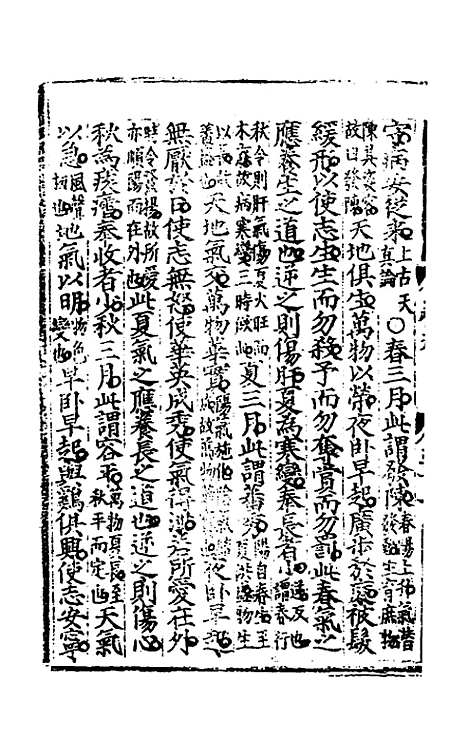 守病安從來上古天真論○春三月此謂發陳春陽上升氣潛發能生育庶物
陳其姿容故曰發陳天地俱生萬物以榮夜卧早起廣步於庭被髮
緩形以使志生生而勿殺予而勿奪賞而勿罰此春氣之
應養生之道也逆之則傷肝夏為寒變奉長者少逆反也謂春行
秋令則肝氣傷夏火旺而木廢故病寒變三時倣此夏三月此謂蕃秀陽自春生至夏洪盛物生
以長故蕃秀也天地氣交萬物華實陽氣施化陰氣故萬物華實夜卧早起
無厭於日使志無怒使華英成秀使氣得泄若所愛在外
時令發揚故所愛亦順陽而在外也此夏氣之應養長之道也逆之則傷心
秋為痎瘧奉收者少秋三月此謂容平萬物夏長至秋平而定也天氣
以急風聲切也地氣以明物色變也早卧早起與雞俱興使志安寧